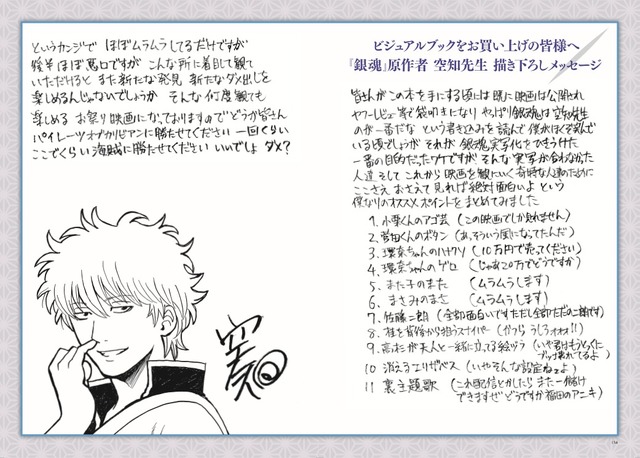 ビジュアルブックをお買い上げの皆様へ
『銀魂』原作者 空知先生 描き下ろしメッセージ
皆さんがこの本を手にする頃には既に映画は公開され
ヤフーレビュー等で袋叩きになり やっぱり銀魂は空知先生
のが一番だな という書き込みを読んで僕がほくそ笑んで
いる頃でしょうが それが銀魂実写化をひきうけた
一番の目的だったワケですが そんな実写が合わなかった
人達 そして これから映画を観にいく奇特な人達のために
ここさえおさえて見れば絶対面白いよ という
僕なりのオススメポイントをまとめてみました
1. 小栗くんのアゴ芸 (この映画でしか見れません)
2. 菅田くんのボタン (あ、そういう風になってたんだ)
3. 環奈ちゃんのハナクソ (10万円で売ってください)
4. 環奈ちゃんのゲロ (じゃあ20万でどうですか)
5. また子のまた (ムラムラします)
6. まさみのまさ (ムラムラします)
7. 佐藤二朗 (全部面白いですただし全部ただの二朗です)
8. 桂を背後から狙うスナイパー (ヅラうしろォォ!!)
9. 高杉が天人と一緒に立ってる絵ヅラ (いや君はもうとっくに
ブッ壊れてるよ)
10 消えるエリザベス (いやそんな設定ねェよ)
11 裏主題歌 (これ配信とかしたら また一儲け
できますぜどうですか福田のアニキ)
というカンジで ほぼムラムラしてるだけですが
後半ほぼ悪口ですが こんな所に着目して観て
いただけると また新たな発見 新たなダメ出しを
楽しめるんじゃないでしょうか そんな何度観ても
楽しめる お祭り映画になっておりますのでどうか皆さん
パイレーツオブカリビアンに勝たせてください 一回くらい
ここでくらい海賊に勝たせてください いいでしょ ダメ?
空知